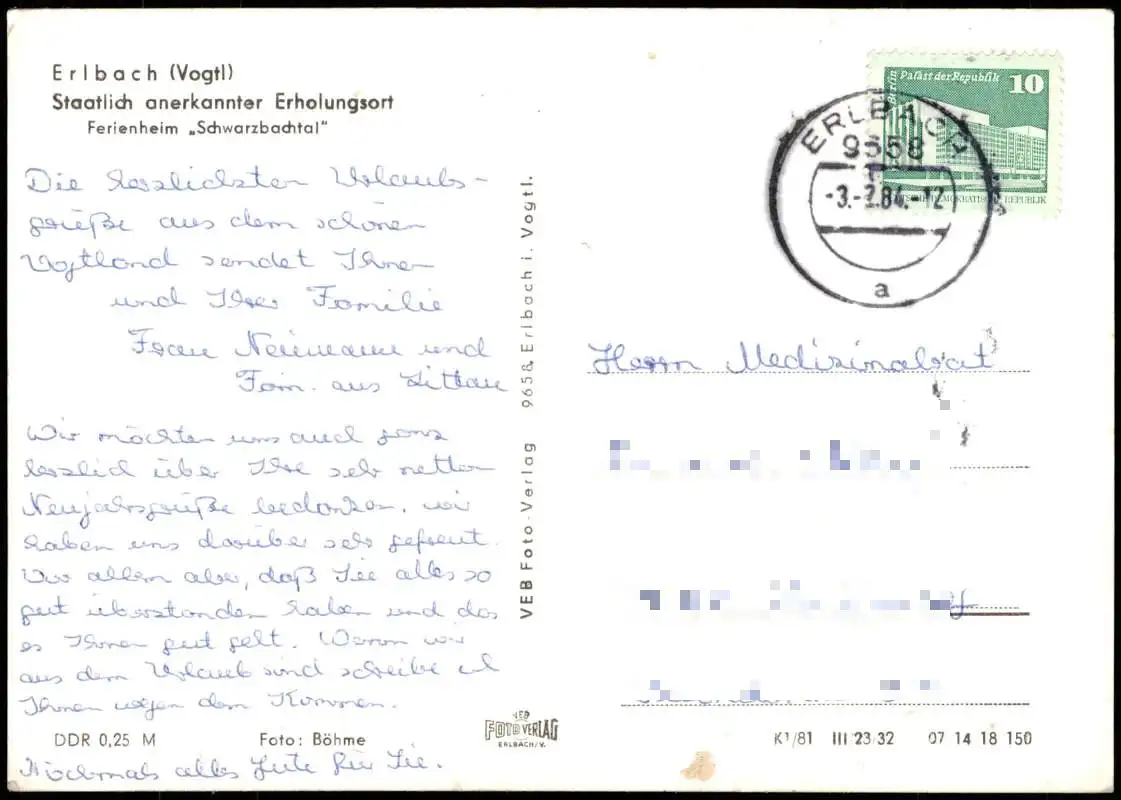 Erlbach (Vogtl)
Staatlich anerkannter Erholungsort
Ferienheim „Schwarzbachtal"
Die herzlichsten Urlaubs-
grüße aus dem schönen
Vogtland sendet Ihnen
und Ihrer Familie
Frau Neumann und
Fam. aus Zittau
Wir möchten uns auch ganz
herzlich über Ihre sehr netten
Neujahrsgrüße bedanken, wir
haben uns darüber sehr gefreut.
Vor allem aber, daß Sie alles so
gut überstanden haben und das
es Ihnen gut geht. Wenn wir
aus dem Urlaub sind schreibe ich
Ihnen wegen dem Kommen.
Nochmals alles Gute für Sie.
DDR 0,25 M
Foto: Böhme
VEB Foto-Verlag 9658 Erlbach i. Vogtl.
VEB
FOTO VERLAG
ERLBACH/V.
Berlin Palast der Republik 10
DEUTSCHE DEMOKRATISCHE REPUBLIK
ERLBACH
9658
-3.-2.84.-12
a
Herrn Medizinalrat
K1/81 III 23 32 07 14 18 150